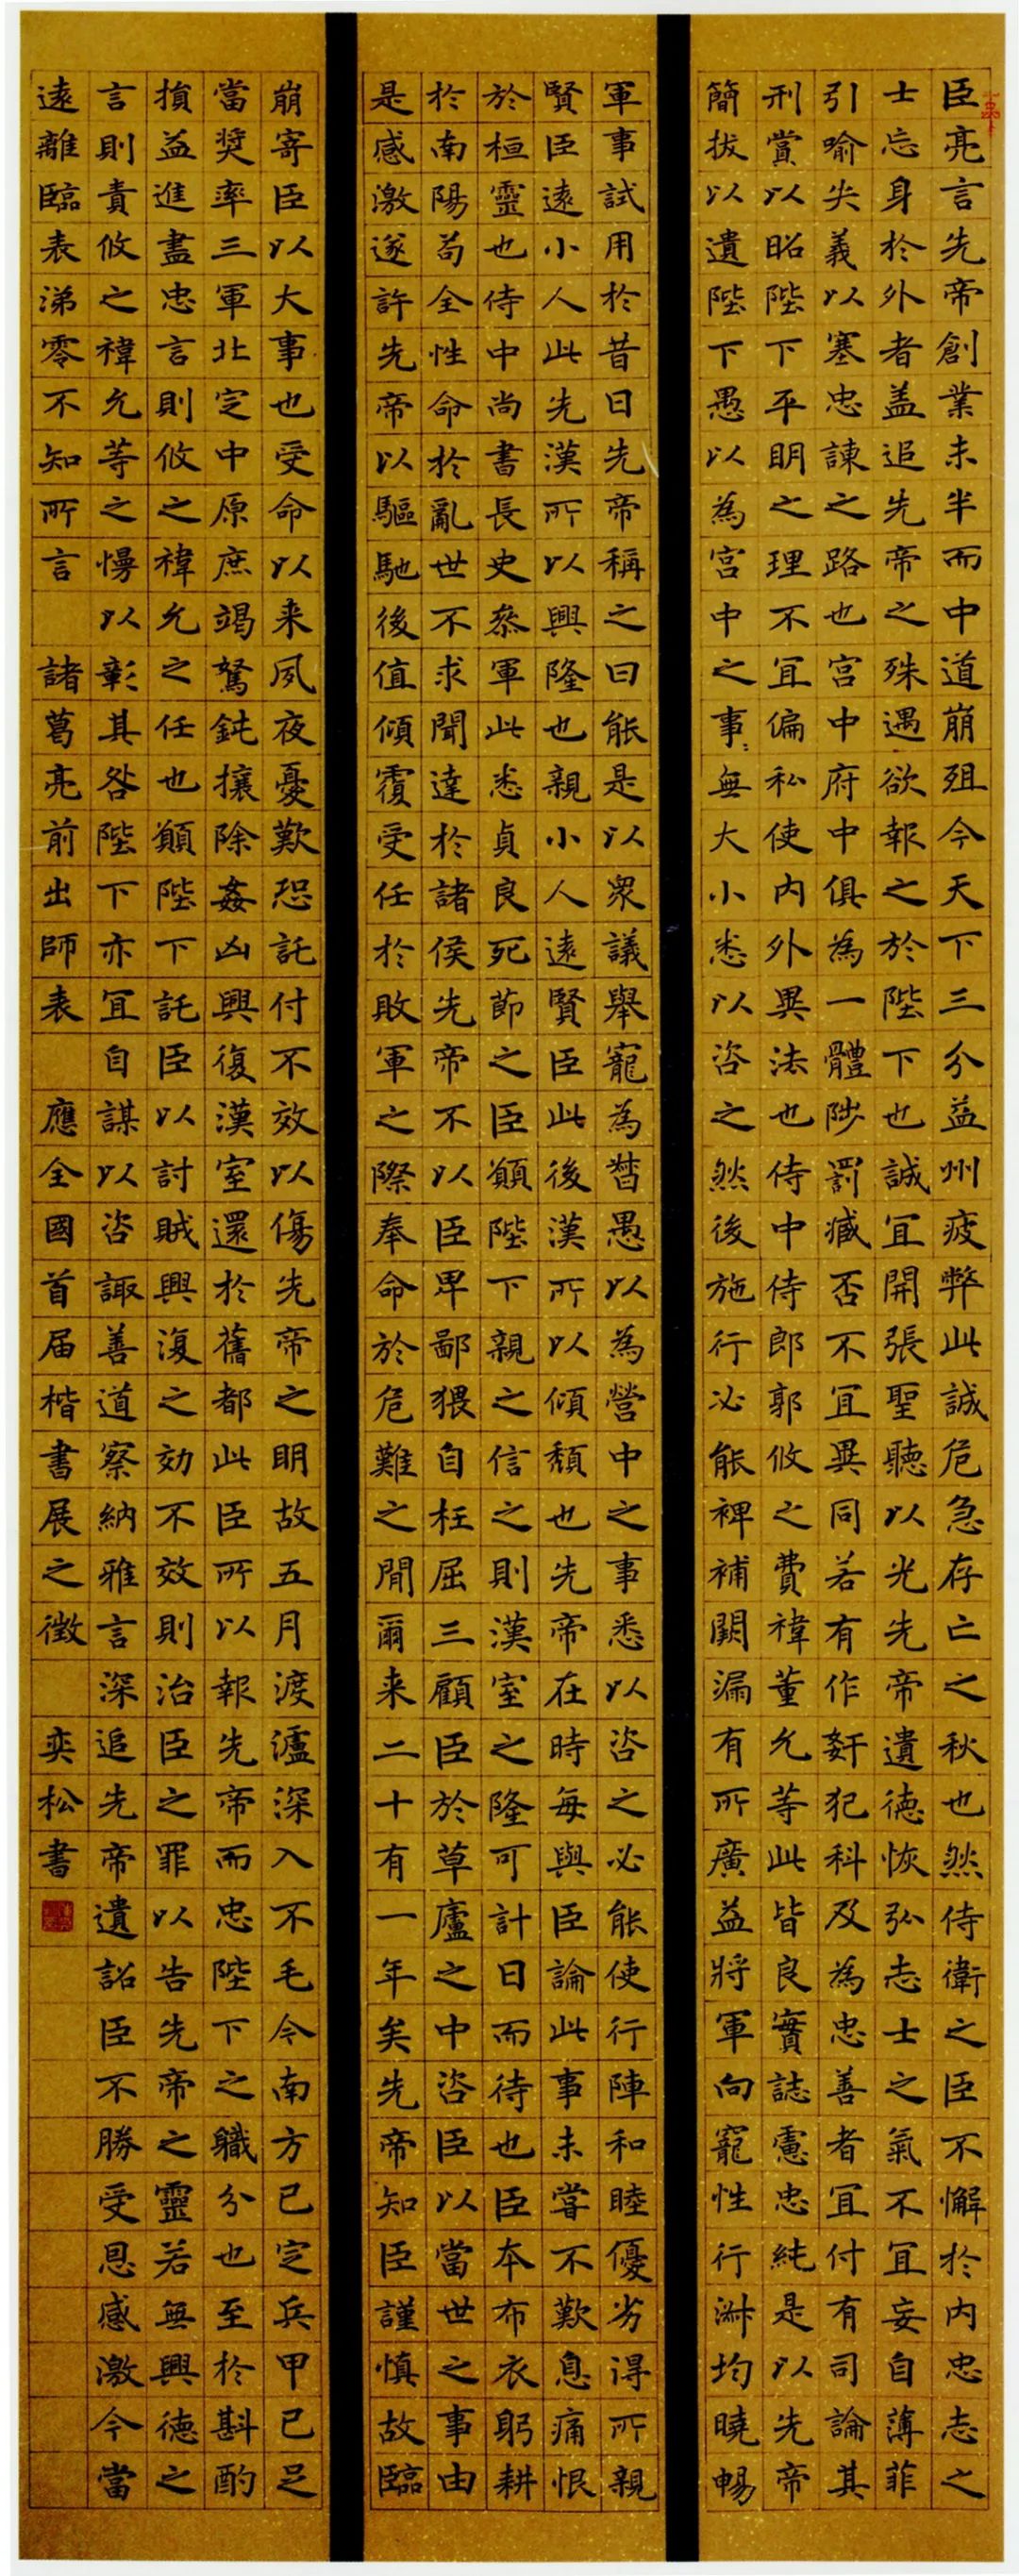 臣亮言先帝創業未半而中道崩殂今天下三分益州疲弊此誠危急存亡之秋也然侍衛之臣不懈於內忠志之
士忘身於外者盖追先帝之殊遇欲報之於陛下也誠宜開張聖聽以光先帝遺德恢弘志士之氣不宜妄自薄菲
引喻失義以塞忠諫之路也宮中府中俱為一體陟罰臧否不宜異同若有作奸犯科及為忠善者宜付有司論其
刑賞以昭陛下平明之理不宜偏私使內外異法也侍中侍郎郭攸之費禕董允等此皆良實誌慮忠純是以先帝
簡拔以遺陛下愚以為宮中之事:無大小悉以咨之然後施行必能裨補闕漏有所廣益將軍向寵性行淑均曉暢
軍事試用於昔日先帝稱之曰能是以眾議舉寵為督愚以為營中之事悉以咨之必能使行陣和睦優劣得所親
賢臣遠小人此先漢所以興隆也親小人遠賢臣此後漢所以傾頹也先帝在時每與臣論此事未嘗不歎息痛恨
於桓靈也侍中尚書長史參軍此悉貞良死節之臣願陛下親之信之則漢室之隆可計日而待也臣本布衣躬耕
於南陽苟全性命於亂世不求聞達於諸侯先帝不以臣卑鄙猥自枉屈三顧臣於草廬之中咨臣以當世之事由
是感激遂許先帝以驅馳後值傾覆受任於敗軍之際奉命於危難之間爾来二十有一年矣先帝知臣謹慎故臨
崩寄臣以大事也受命以来夙夜憂歎恐託付不效以傷先帝之明故五月渡瀘深入不毛今南方已定兵甲已足
當獎率三軍北定中原庶竭駑鈍攘除姦凶興復漢室還於舊都此臣所以報先帝而忠陛下之職分也至於斟酌
損益進盡忠言則攸之禕允之任也願陛下託臣以討賊興復之効不效則治臣之罪以告先帝之靈若無興德之
言則責攸之禕允等之慢以彰其咎陛下亦宜自謀以咨諏善道察納雅言深追先帝遺詔臣不勝受恩感激今當
遠離臨表涕零不知所言 諸葛亮前出師表 應全國首届楷書展之徵 奕松書